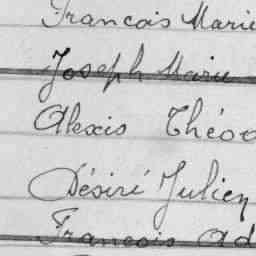 Francois Marie
Joseph Marie
Alexis Théod
Désiré Julien
Francois Ad